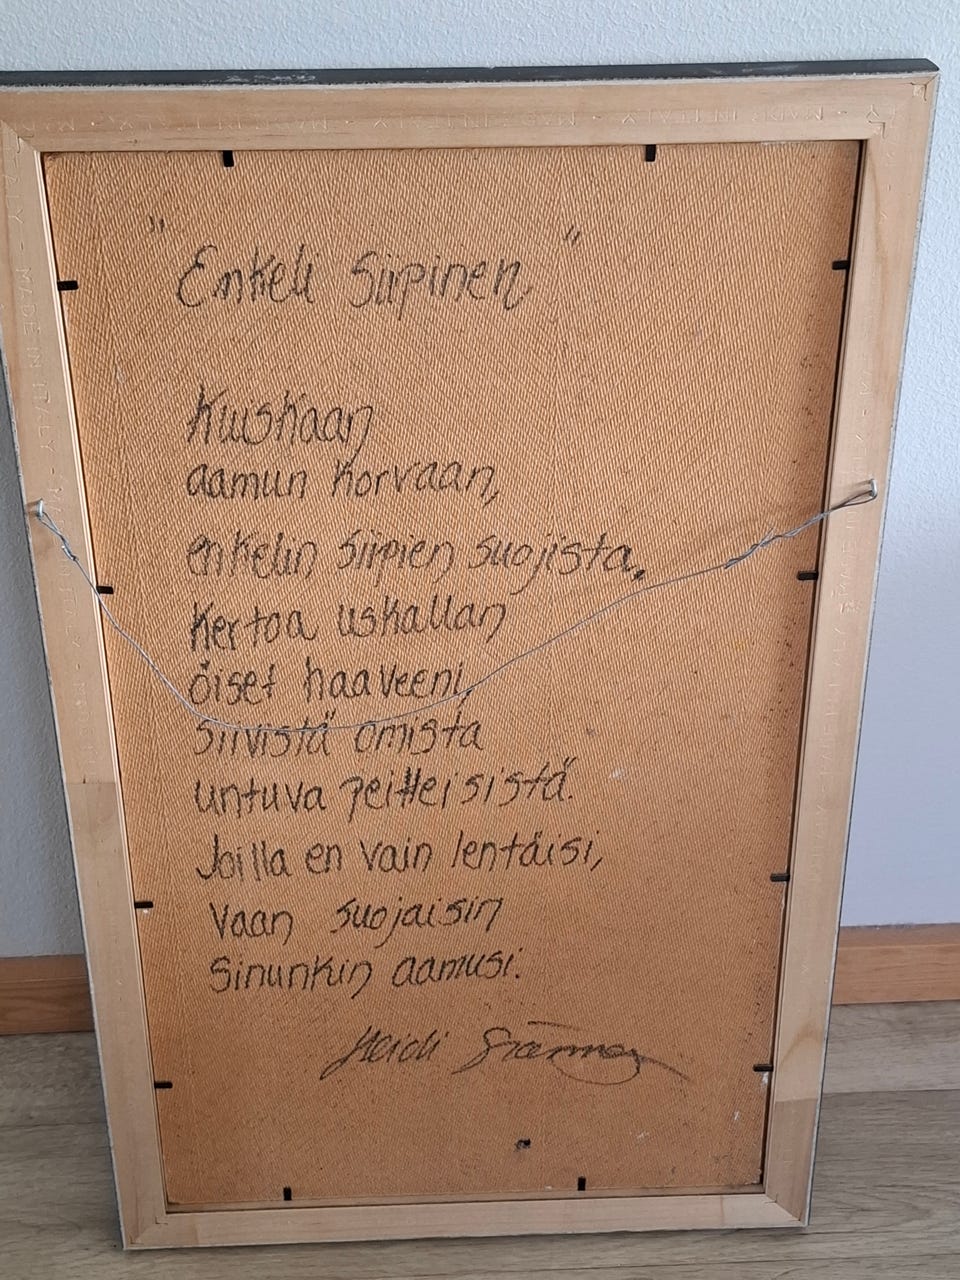 "Enkeli Siipinen"
Kuiskaan
aamun korvaan,
enkelin siipien suojista,
Kertoa uskallan
öiset haaveeni,
siivistä omista
untuva peitteisistä.
Joilla en vain lentäisi,
vaan suojaisin
Sinunkin aamusi.
Heidi
MADE IN ITALY